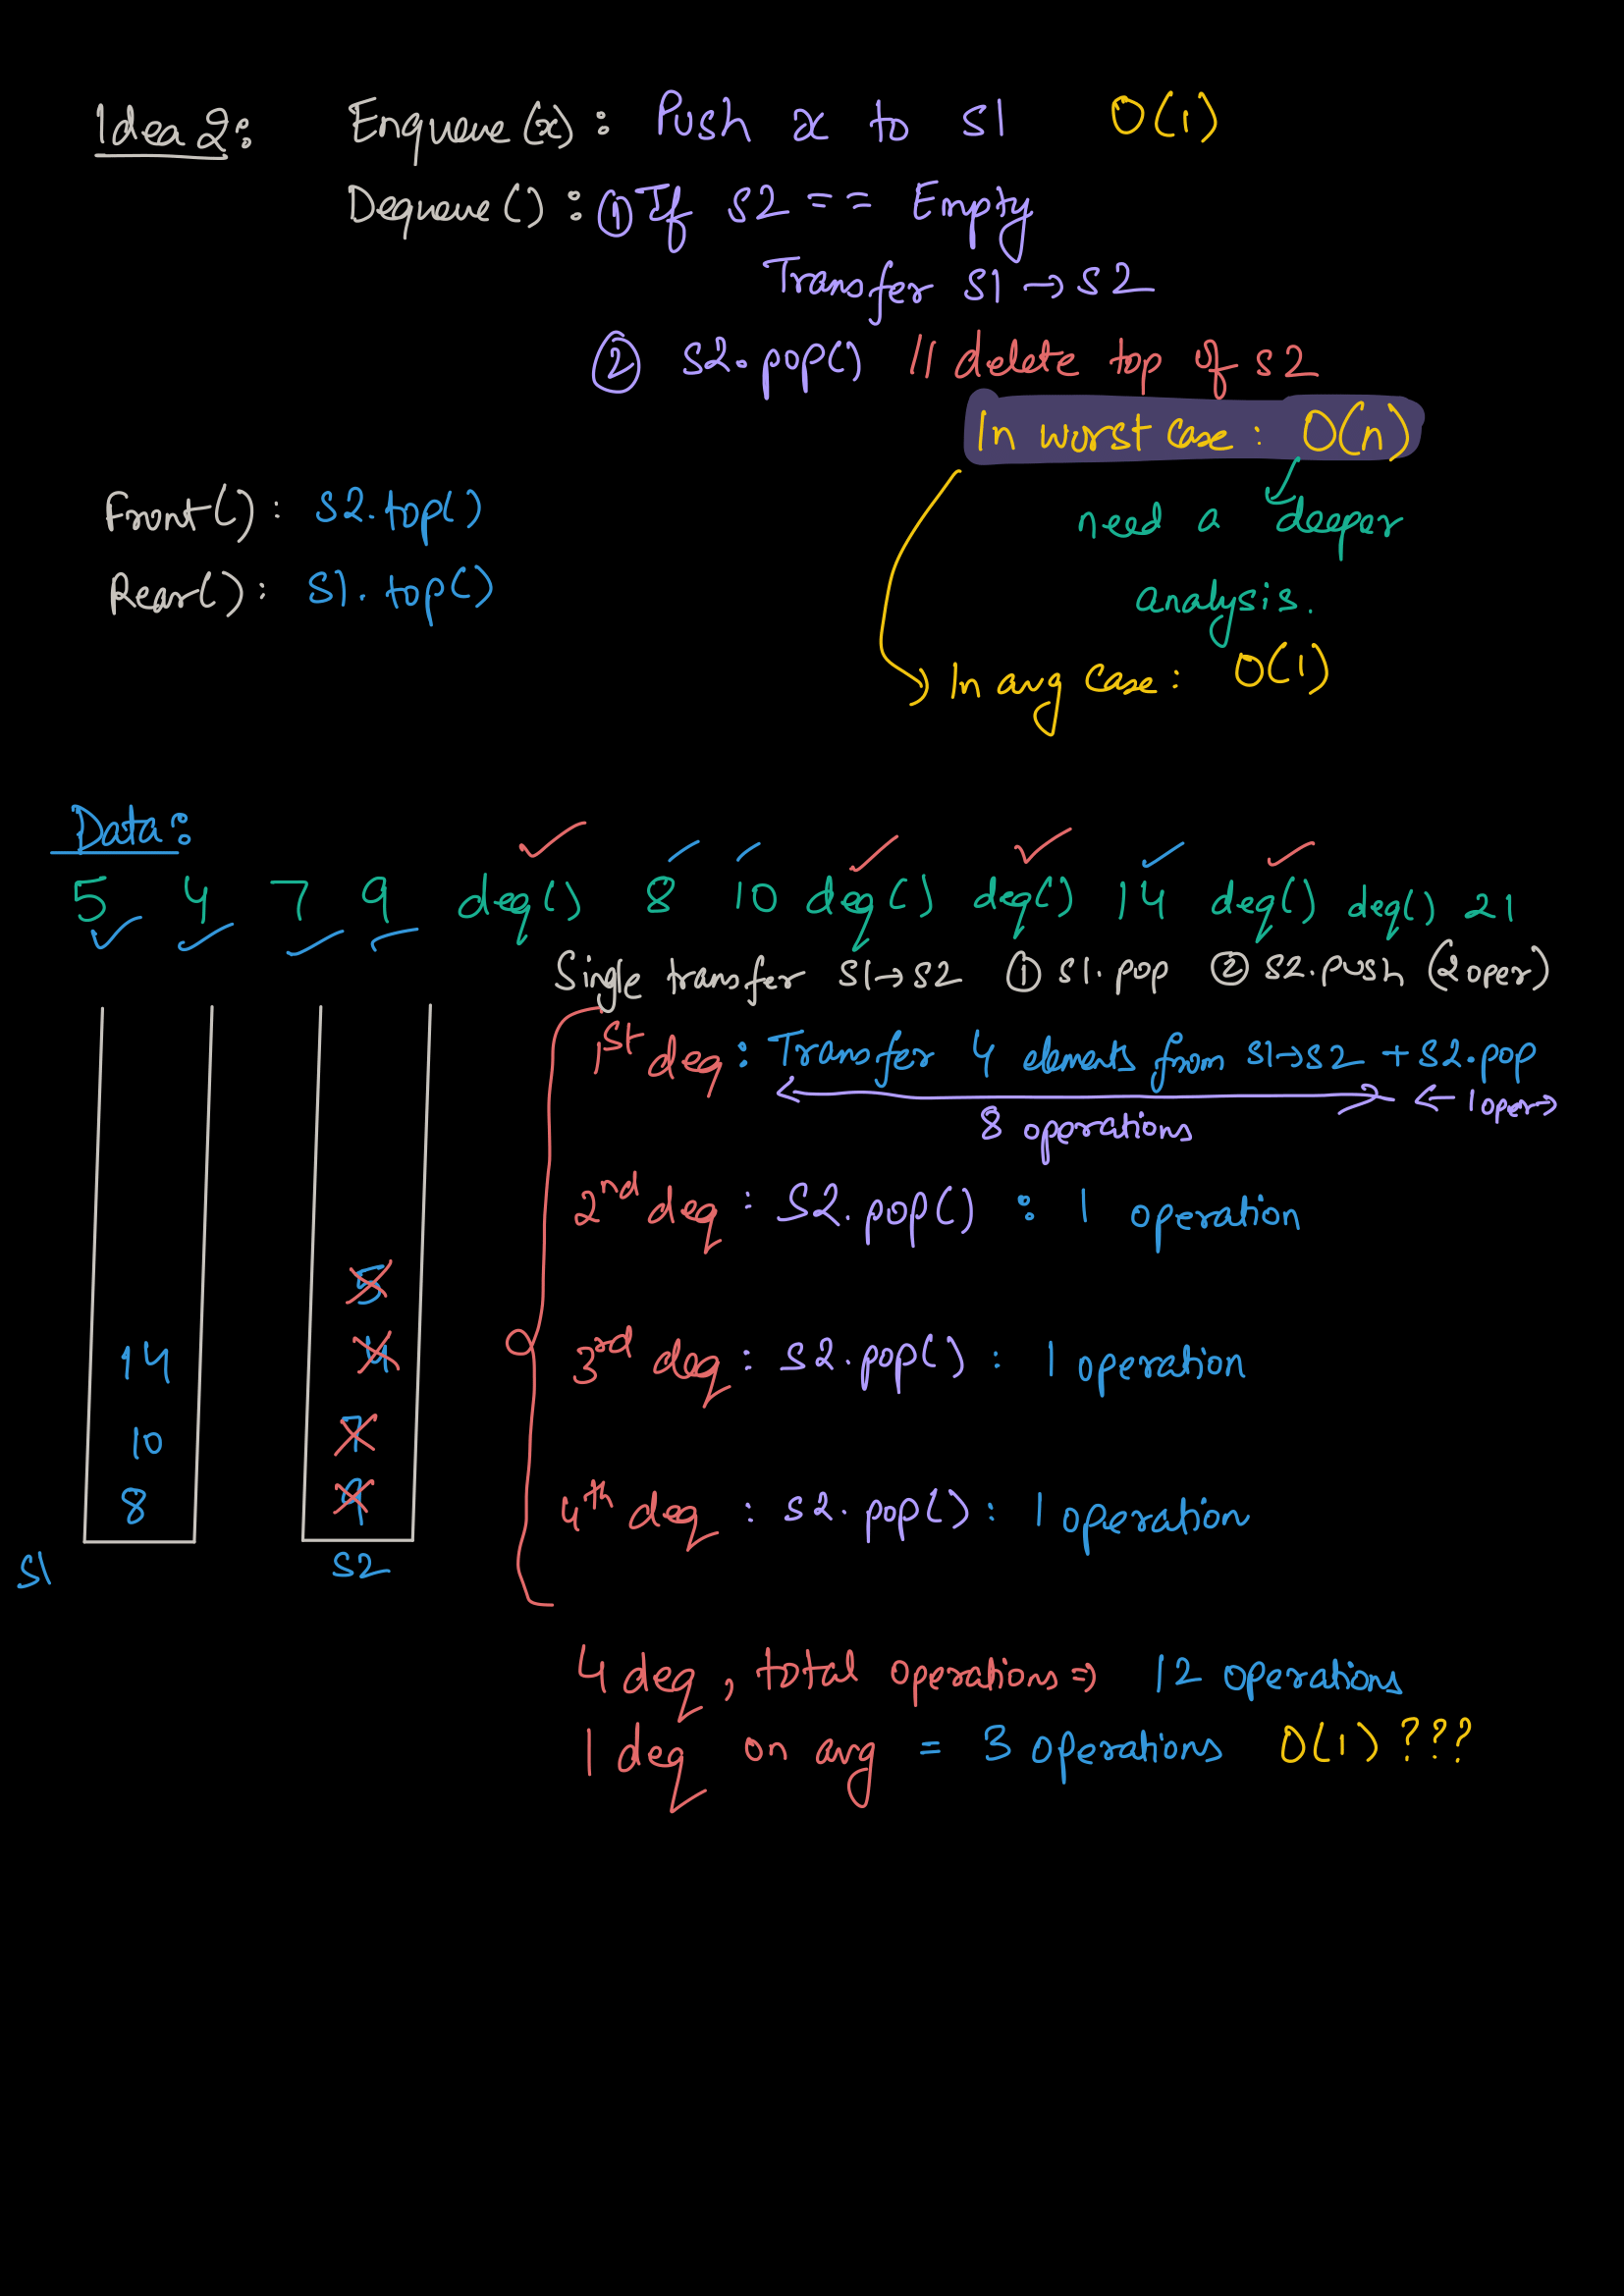 Idea 2: Enqueue(x): Push x to S1 O(1)
Dequeue(): ① If S2 == Empty
Transfer S1 → S2
② S2.pop() // delete top of S2
In worst case: O(n)
Front(): S2.top()
need a deeper
Rear(): S1.top()
analysis.
In avg case: O(1)
Data:
5 4 7 9 deq() 8 10 deq() deq() 14 deq() deq() 21
Single transfer S1→S2 ① S1.pop ② S2.push (2 oper)
1st deq: Transfer 4 elements from S1→S2 + S2.pop
8 operations 1 oper
2nd deq: S2.pop() : 1 operation
5
3rd deq: S2.pop() : 1 operation
14 4
10 7
4th deq: S2.pop() : 1 operation
8 9
S1 S2
4 deq, total operations ⇒ 12 operations
1 deq on avg = 3 operations O(1) ???